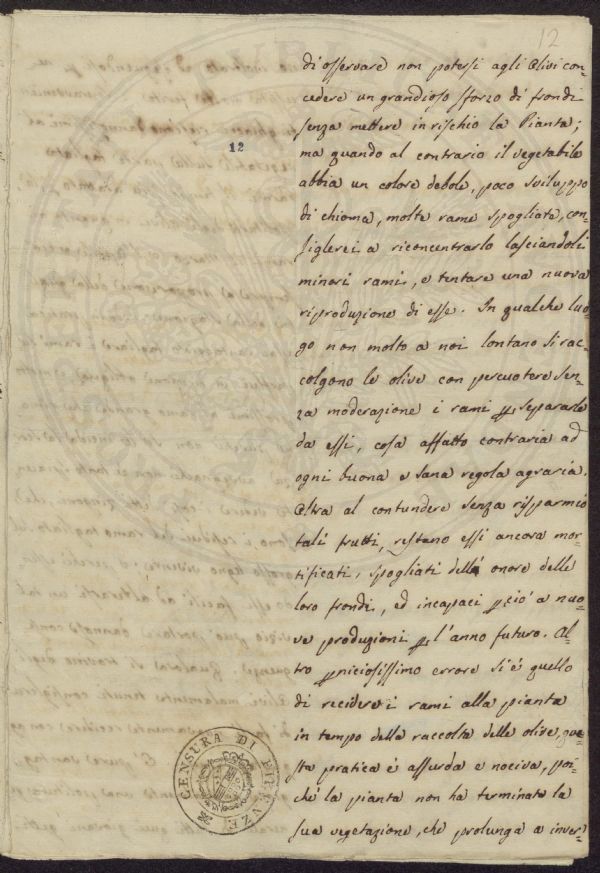 12
12
di osservare non potersi agli Olivi con-
cedere un grandioso sforzo di frondi
senza mettere in rischio la Pianta;
ma quando al contrario il vegetabile
abbia un colore debole, poco sviluppo
di chioma, molte rame spogliate, con-
siglierei a riconcentrarlo lasciandoli
minori rami, e tentare una nuova
riproduzione di esse. In qualche luo-
go non molto a noi lontano si rac-
colgono le olive con percuotere sen-
za moderazione i rami p separarle
da essi, cosa affatto contraria ad
ogni buona e sana regola agraria.
Oltra al contundere senza risparmio
tali frutti, restano essi ancora mor-
tificati, spogliati dell' onore delle
loro frondi, ed incapaci pciò a nuo-
ve produzioni p l'anno futuro. Al-
tro pniciosissimo errore si è quello
di recidere i rami alla pianta
in tempo della raccolta delle olive, que-
sta pratica è assurda e nociva, poi-
ché la pianta non ha terminata la
sua vegetazione, che prolunga a inver-
CENSURA DI FIRENZE